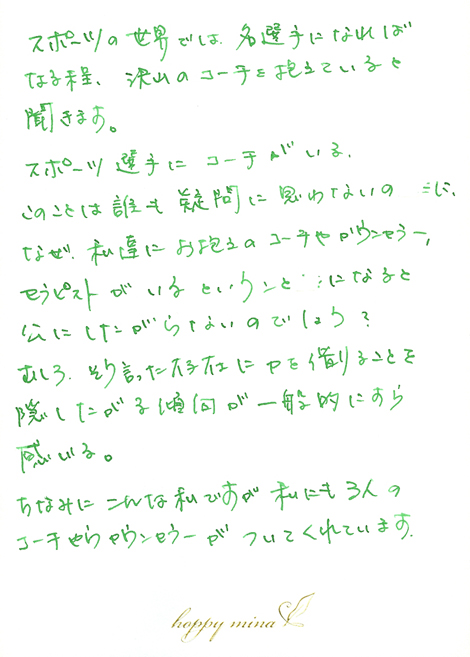 スポーツの世界では、名選手になれば
なる程、沢山のコーチを抱えていると
聞きます。
スポーツ選手にコーチがいる、
このことは誰も疑問に思わないのに、
なぜ、私達にお抱えのコーチやカウンセラー、
セラピストがいるということになると
公にしたがらないのでしょう?
むしろ、そう言った存在に力を借りることを
隠したがる傾向が一般的にすら
感じる。
ちなみにこんな私ですが私にも3人の
コーチやらカウンセラーが ついてくれています。
happy mina